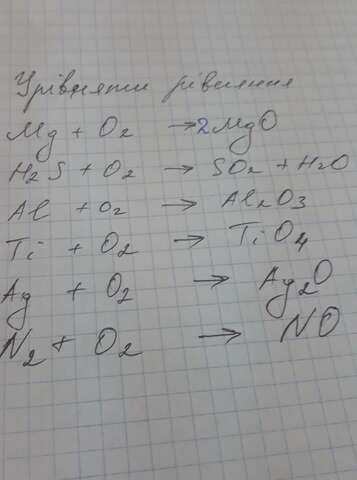 Урівняти рівняння
Mg + O2 → 2MgO
H2S + O2 → SO2 + H2O
Al + O2 → Al2O3
Ti + O2 → TiO4
Ag + O2 → Ag2O
N2 + O2 → NO